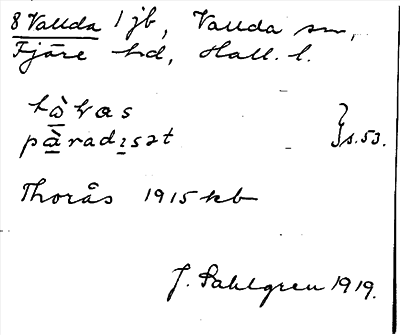 8 Vallda 1 jb, Vallda sn,
Fjäre hd, Hall. l.
tàkas
pàradisat } s. 53.
Thorås 1915 kb
J. Sahlgren 1919.